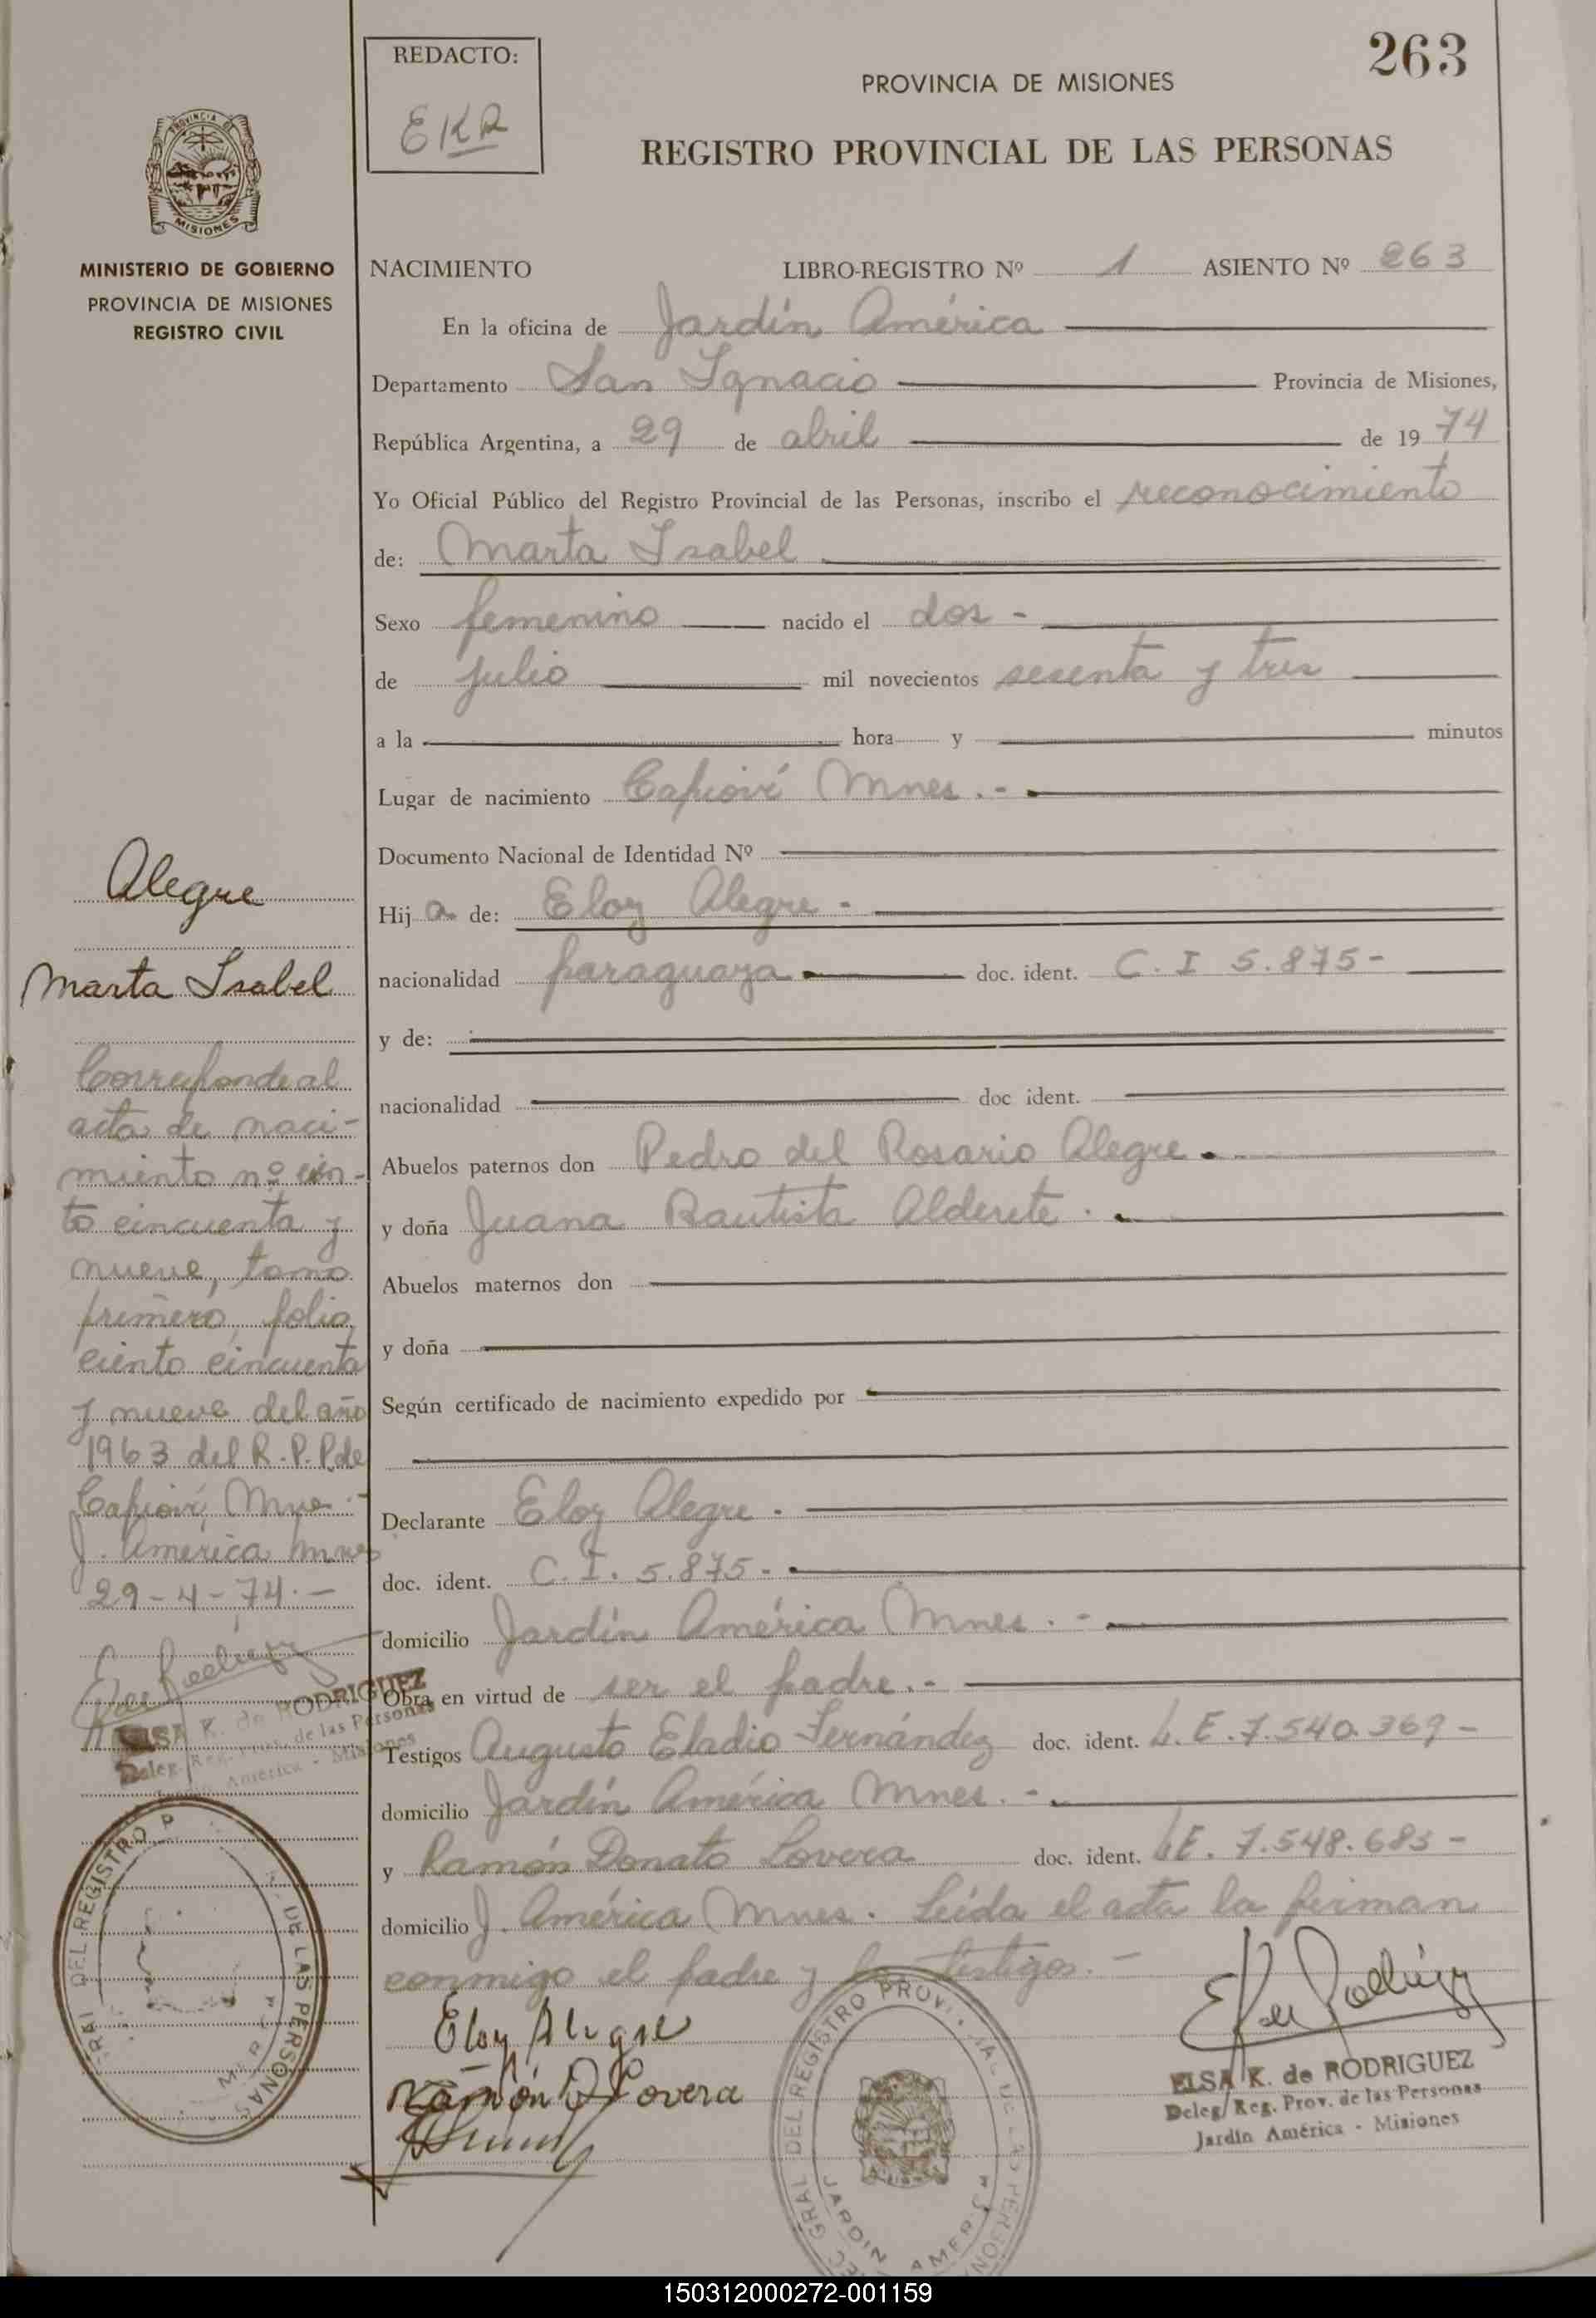 263
REDACTO:
EKR
PROVINCIA DE MISIONES
REGISTRO PROVINCIAL DE LAS PERSONAS
PROVINCIA DE
MISIONES
MINISTERIO DE GOBIERNO
PROVINCIA DE MISIONES
REGISTRO CIVIL
NACIMIENTO LIBRO-REGISTRO Nº 1 ASIENTO Nº 263
En la oficina de Jardín América
Departamento San Ignacio Provincia de Misiones,
República Argentina, a 29 de abril de 1974
Yo Oficial Público del Registro Provincial de las Personas, inscribo el reconocimiento
de: Marta Isabel
Sexo femenino nacido el dos -
de julio mil novecientos sesenta y tres
a la hora y minutos
Lugar de nacimiento Capioví Mnes. -
Documento Nacional de Identidad Nº
Hija de: Eloy Alegre -
nacionalidad paraguaya doc. ident. C. I 5.875-
y de:
nacionalidad doc ident.
Abuelos paternos don Pedro del Rosario Alegre.
y doña Juana Bautista Alderete.
Abuelos maternos don
y doña
Según certificado de nacimiento expedido por
Declarante Eloy Alegre -
doc. ident. C. I. 5.875-
domicilio Jardín América Mnes. -
Obra en virtud de ser el padre. -
Testigos Augusto Eladio Fernández doc. ident. L. E. 7.540.369 -
domicilio Jardín América Mnes. -
y Ramón Donato Lovera doc. ident. L.E. 7.548.683 -
domicilio J. América Mnes. Leída el acta la firman
conmigo el padre y los testigos. -
Eloy Alegre
Ramón D Lovera
ELSA K. de RODRIGUEZ
Deleg. Reg. Prov. de las Personas
Jardín América - Misiones
Alegre
Marta Isabel
Corresponde al
acta de naci-
miento nº cien-
to cincuenta y
nueve, tomo
primero, folio
ciento cincuenta
y nueve del año
1963 del R.P.P. de
Capioví, Mnes. -
J. América Mnes
29-4-74. -
ELSA K. de RODRIGUEZ
Deleg. Reg. Prov. de las Personas
Jardín América - Misiones
DEL REGISTRO P DE LAS PERSONAS
GRAL DEL REGISTRO PROV. DE LAS PERSONAS
JARDIN AMERICA
150312000272-001159